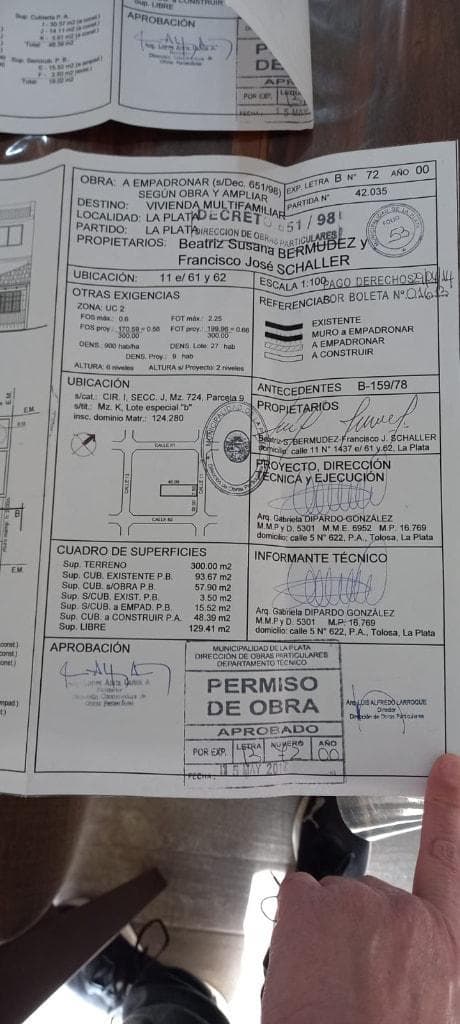 Sup. LIBRE
APROBACIÓN
Total
POR EXP.
OBRA: A EMPADRONAR (s/Dec. 651/98)
SEGÚN OBRA Y AMPLIAR
EXP. LETRA B N° 72 AÑO 00
DESTINO: VIVIENDA MULTIFAMILIAR
PARTIDA N° 42.035
LOCALIDAD: LA PLATA
DECRETO 651/98
PARTIDO: LA PLATA
DIRECCION DE OBRAS PARTICULARES
PROPIETARIOS: Beatriz Susana BERMUDEZ y
Francisco José SCHALLER
FOLIO
53
UBICACIÓN: 11 e/ 61 y 62
ESCALA 1:100
PAGO DERECHOS
OTRAS EXIGENCIAS
REFERENCIA
BOR BOLETA N°
ZONA: UC 2
FOS máx.: 0.6 FOT máx.: 2.25
FOS proy.: 170.59 = 0.56 FOT proy.: 199.96 = 0.66
300.00 300.00
DENS.: 900 hab/ha DENS. Lote: 27 hab
DENS. Proy.: 9 hab
ALTURA: 6 niveles ALTURA s/ Proyecto: 2 niveles
EXISTENTE
MURO a EMPADRONAR
A EMPADRONAR
A CONSTRUIR
UBICACIÓN
s/cat.: CIR. I, SECC. J, Mz. 724, Parcela 9
s/tit.: Mz. K, Lote especial "b"
insc. dominio Matr.: 124.280
CALLE 61
CALLE 12
CALLE 62
ANTECEDENTES B-159/78
PROPIETARIOS
Beatriz S. BERMUDEZ-Francisco J. SCHALLER
domicilio: calle 11 N° 1437 e/ 61 y 62, La Plata
PROYECTO, DIRECCIÓN
TÉCNICA y EJECUCIÓN
Arq. Gabriela DIPARDO GONZÁLEZ
M.M.P y D. 5301 M.M.E. 6952 M.P. 16.769
domicilio: calle 5 N° 622, P.A., Tolosa, La Plata
CUADRO DE SUPERFICIES
Sup. TERRENO 300.00 m2
Sup. CUB. EXISTENTE P.B. 93.67 m2
Sup. CUB. s/OBRA P.B. 57.90 m2
Sup. S/CUB. EXIST. P.B. 3.50 m2
Sup. S/CUB. a EMPAD. P.B. 15.52 m2
Sup. CUB. a CONSTRUIR P.A. 48.39 m2
Sup. LIBRE 129.41 m2
INFORMANTE TÉCNICO
Arq. Gabriela DIPARDO GONZÁLEZ
M.M.P y D. 5301 M.P. 16.769
domicilio: calle 5 N° 622, P.A., Tolosa, La Plata
APROBACIÓN
MUNICIPALIDAD DE LA PLATA
DIRECCIÓN DE OBRAS PARTICULARES
DEPARTAMENTO TÉCNICO
PERMISO
DE OBRA
APROBADO
POR EXP. LETRA NUMERO AÑO
B 72 00
FECHA:
5 MAY
Arq. LUIS ALFREDO LARROQUE
Director
Dirección de Obras Particulares
E.M.